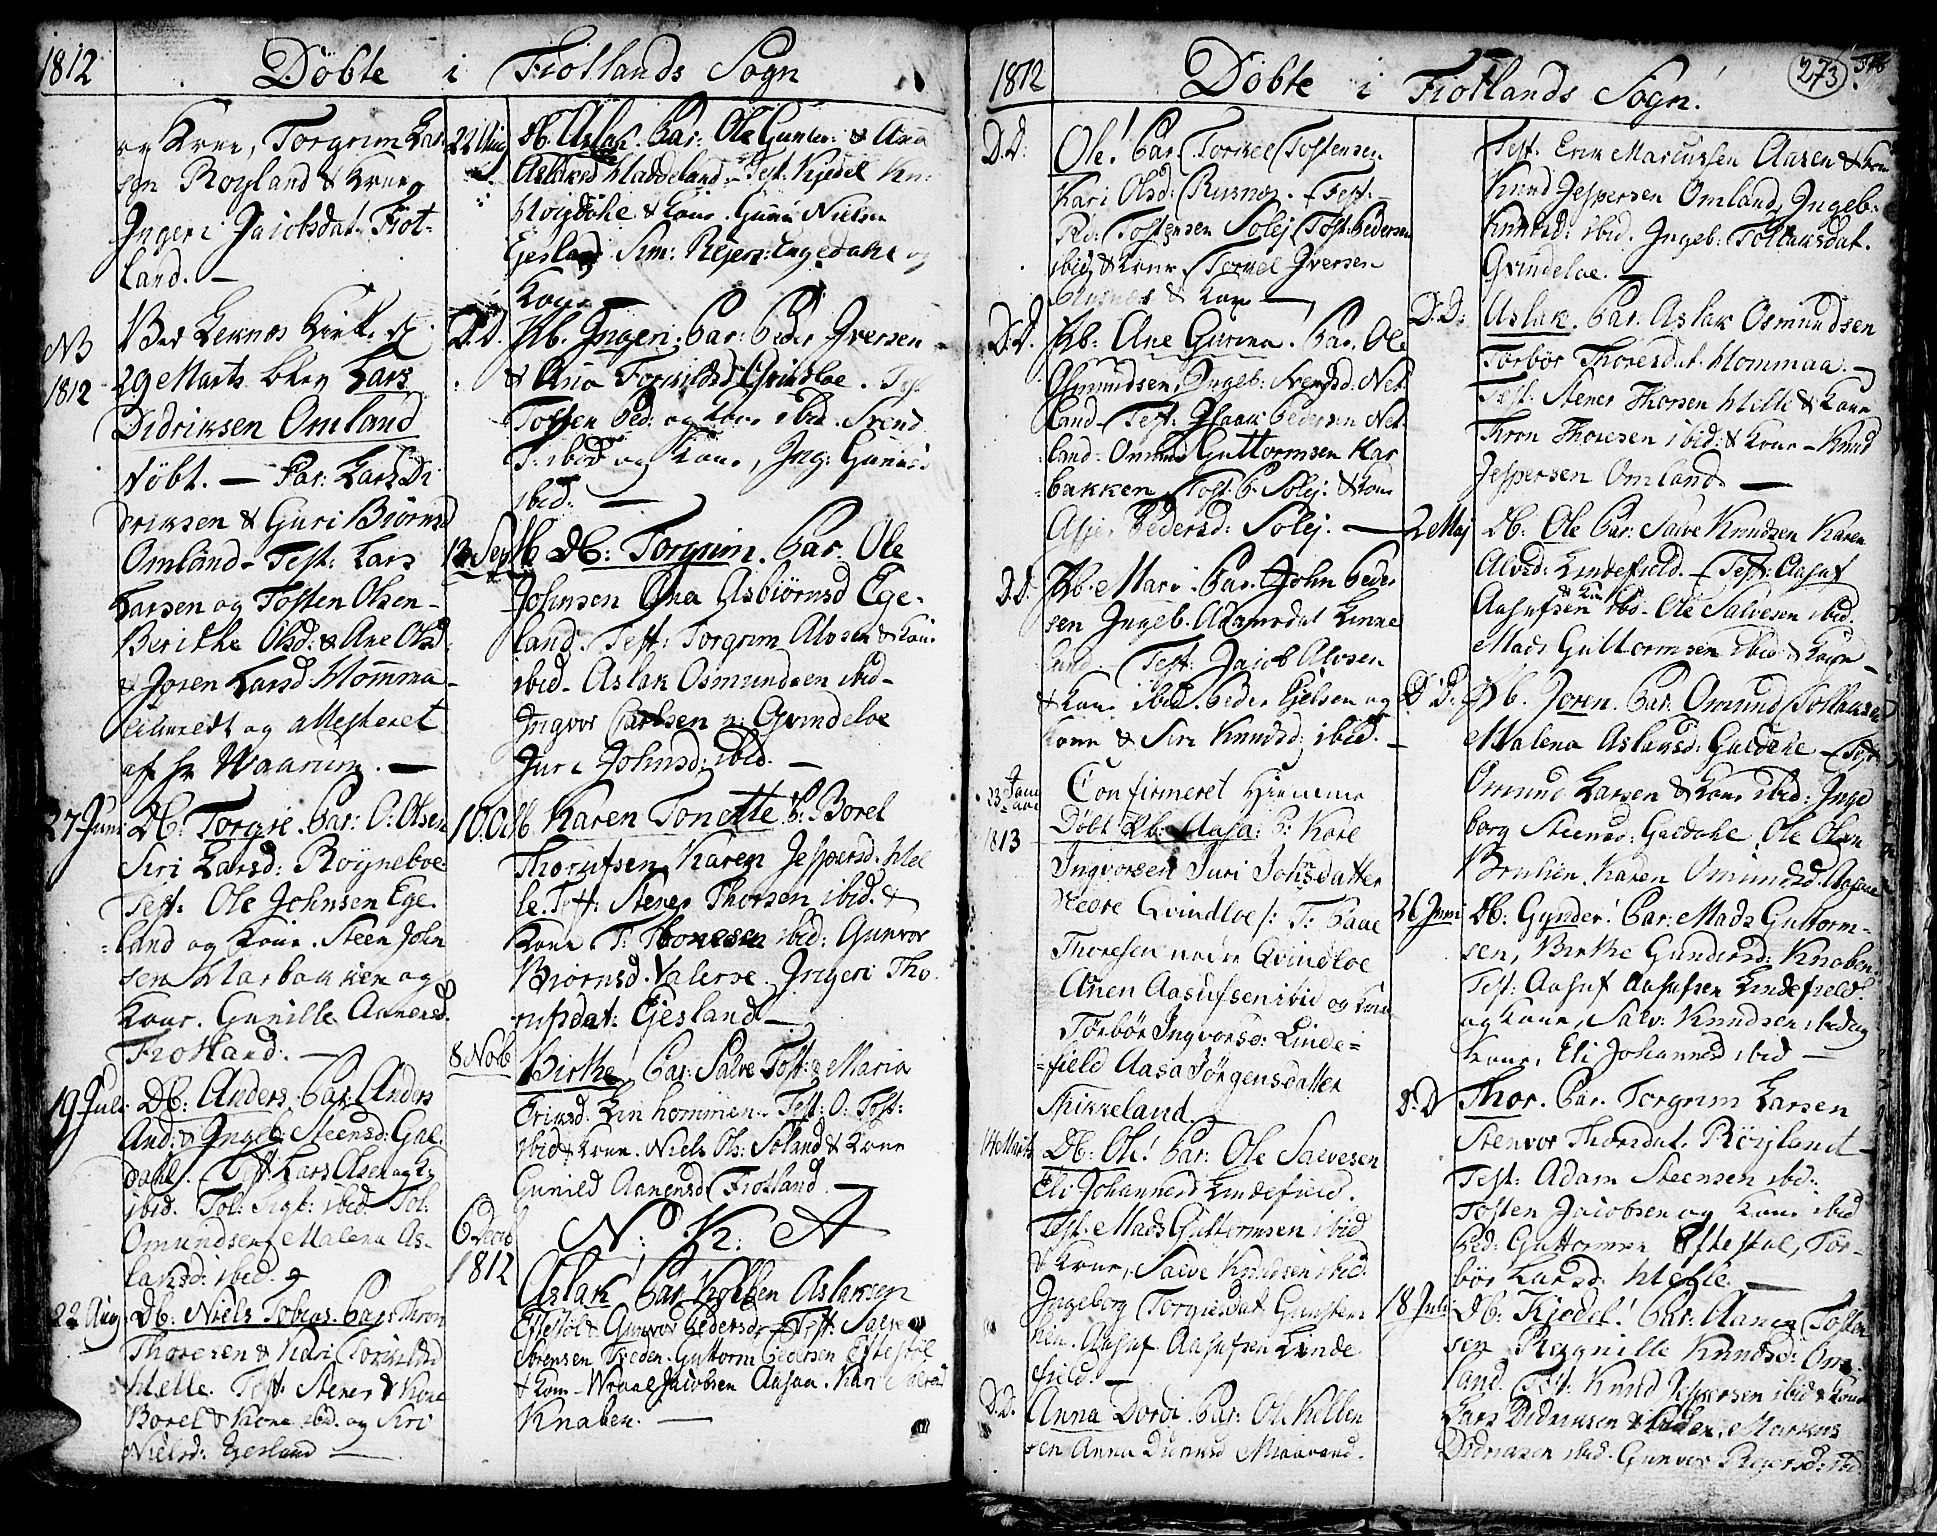 1812 Döbte i Fiotlands Sogn
og Kone, Torgrim Lar-
sen Røyland & Kone
Ingeri Jacobsdat. Fiot-
land. —
NB Ved Leknes Kirke d
1812 29 Marts blev Lars
Didriksen Omland
döbt. — Par: Lars Di
driksen & Guri Biörnsd
Omland - Test: Lars
Larsen og Tosten Olsen -
Berithe Olsd: & Ane Olsd
& Joren Larsd Homma -
og attesteret
af hr Waarum. —
27 Juni Db: Torgie. Par: O: Olsen
Siri Larsd: Röyneboe
Test: Ole Johnsen Ege-
land og Kone. Steen John
sen Harbakken og
Kone. Gunille Aanensd.
Fiotland. —
19 Juli Db: Anders. Par: Anders
And: & Ingeb: Steensd: Gal-
dahl. Test Lars Olsen og K
ibid. Tol: Sigb: ibid Tol:
Omundsen Malena As-
laksd: ibid.
22 Aug Db: Niels Tobias. Par: Thron
Thoresen & Kari Torkildsd
Helle. Test. Stener & Kone
Borel & Kone ibd. og Siri
Nielsd: Egesland —
22 Aug Db. Aslak. Par: Ole Gunder: & Ana
Aslaksd Haddeland - Test. Kjedel Kn:
& Kone. Gunu Nielsen
Egesland Sim: Rejers: Ingedahl og
Kone
D.D. Pb. Ingeri. Par: Peder Iversen
& Ana Torkildsd Qvindloe. Test
Tosten Ped: og Kone ibid. Svend
T: ibid og Kone, Ing: Gunusd
ibid: —
13 Sept Db: Torgrim. Par. Ole
Johnsen Ana Asbiörnsd Ege-
land. Test: Torgrim Alvsen & Kone
ibid - Aslak Osmundsen ibid -
Ingvor Carlsen n: Gvindeloe
Juri Johnsd: ibid. —
10 Octb Karen Tonette P: Borel
Thorufsen, Karen Jespersd. Hel
le. Test: Stener Thorsen ibid. &
Kone T: Thoresen ibid: Gunvor
Biörnsd. Valerse. Ingeri Tho
rufsdat: Egesland —
8 Nob Birthe! Par: Salve Tost: & Maria
Eriksd: Linhommen. Test: O: Tost:
ibid & Kone. Niels Ols: Soland & Kone
Gunild Aanensd Fiotland —
6 Decb N: K: A
1812 Aslak! Par Kolben Aslaksen
Eftestöl & Gunvor Pedersdr Test: Salve
Sorensen Tveden. Guttorm Pedersen Eftestöl
& Kone - Wraal Jacobsen Aasaa. Kari
Knaben. —
1812 Döbte i Fiotlands Sogn. 273
D.D: Ole! Par. Torkel Tostensen
Kari Olsd: Rusnes. Test:
Ped: Tostensen Solej Tost: Pedersen
ibid & Kone, Torkel Iversen
Rusnes & Kone —
D.D. Pb: Ane Gurina. Par. Ole
Osmundsen, Ingeb: Svendsd: Net-
land - Test: Isaak Pedersen Net-
land. Omund Guttormsen Har
bakken, Tost: P. Solej. & Kone
Asje. Pedersd: Solej. —
D.D. Pb. Mari. Par. John Peder
sen Ingeb. Adamsdat Linne
land. — Test: Jacob Alvsen
& Kone ibid. Peder Ejelsen og
Kone & Siri Knudsd: ibid. —
23 Janu
ari Confirmeret Hiemme
1813 Döbt Pb: Aasa: P: Kore
Ingvorsen Juri Johsdatter
Nedre Qvindloe /: T: Paul
Thoresen nedre Qvindloe
Anen Aasufsen ibid og Kone
Törbör Ingvorsd: Linde=
=field Aasa Jörgensdatter
Thikkeland
14 Marts Db: Ole! Par: Ole Salvesen
Eli Johannesd Lindefield.
Test: Mads Guttormsen ibid
& Kone, Salve Knudsen ibid:
Ingeborg Torgiesdat
Aasuf Aasufsen Linde
field. —
D.D. Anna Dordi. Par: Ol: Kolben
sen Anna Miaavand.
Test. Erik Marcussen Aasen & Kone
Knud Jespersen Omland, Ingeb:
Knudsd: ibid. Ingeb: Tollaksdat.
Gvindeloe. —
D.D: Aslak. Par: Aslak Osmundsen
Torbor Thoresdat Hommaa. —
Test: Stener Thorsen Helle & Kone
Thron Thoresen ibid: & Kone - Knud
Jespersen Omland —
2 Maj Db: Ole Par: Salve Knudsen Karen
Alvsd: Lindefield. — Test: Aasuf
Aasufsen & Kone ibd - Ole Salvesen ibid.
Mads Guttormsen ibid & Kone —
D.D: Pb. Joren. Par. Omund Tollaksen
Malena Aslaksd: Galdahl — Test:
Omund Larsen & Kone ibid: Inge
borg Steensd: Galdahl, Ole Olsen
Bruhien. Karen Omundsd
26 Juni Db: Gunder! Par: Mads Guttorm-
sen, Birthe Gundersd: Knaben
Test: Aasuf Aasufsen Lindefield.
og Kone, Salv: Knudsen ibid og
Kone, Eli Johannesd ibid —
D.D Thor. Par. Torgrim Larsen
Stenvor Thorsdat. Röyland —
Test: Adam Steensen ibd:
Tosten Jacobsen og Kone ibid
Ped: Guttormsen Eftestøl, Tor-
bör Larsd: Helle —
18 Juli Db: Kjedel! Par: Aanen Tosten
sen Ragnille Knudsd: Om-
land. Test: Knud Jespersen ibid & Kone
Lars Didriksen & Peder, Markus
Didriksen ibid. Gunvor Rejersd: ibid